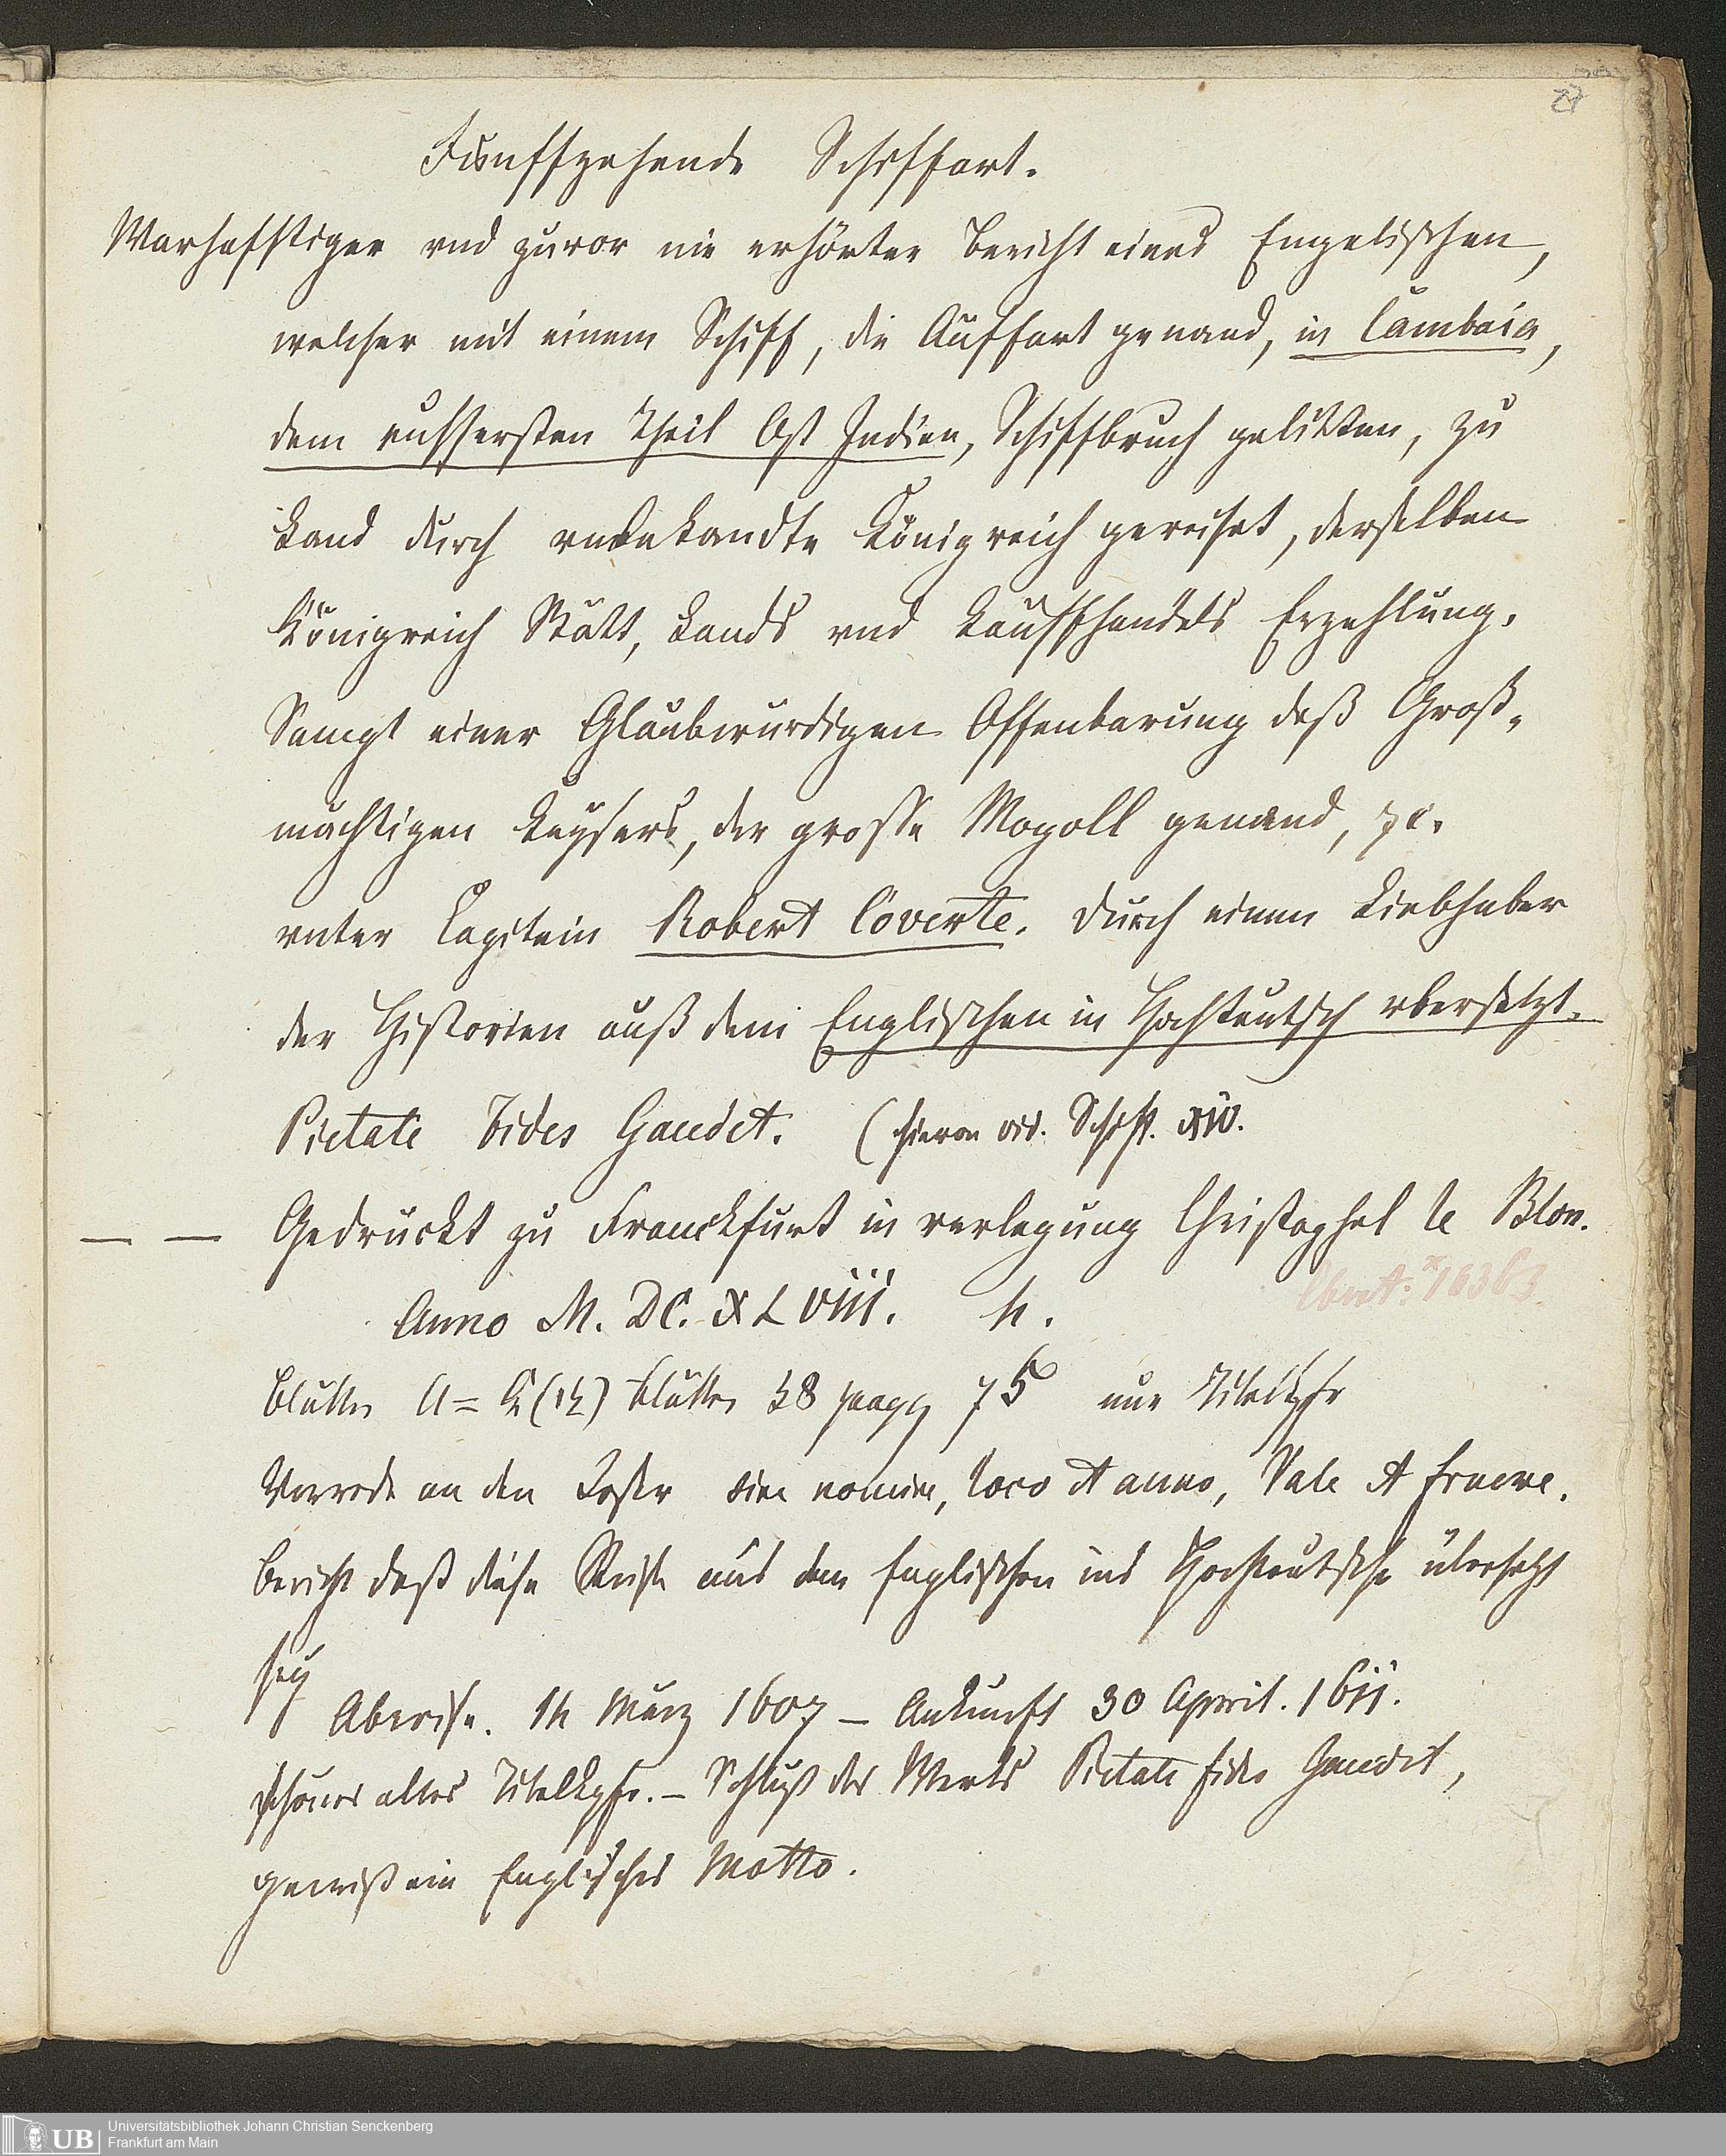 Funffzehende Schiffart.
Warhafftiger vnd zuvor nie erhörter Bericht eines Engelischen,
welcher mit einem Schiff, die Auffart genand, in Cambaia,
dem eussersten Theil Ost Indien, Schiffbruch gelitten, zu
Land durch vnbekandte Königreich gereiset, derselben
Königreich Stätt, Lands vnd Kauffhandels Erzehlung.
Sampt einer Glaubwurdigen Offenbarung deß Groß-
mächtigen Keysers, der grosse Mogoll genand, ꝛc.
vnter Capitein Robert Coverte. Durch einen Liebhaber
der Historien auß dem Englischen in Hochteutsch vbersetzt.
Pietate Fides Gaudet. (hievon vid. Schiff. XIV.
— — Gedruckt zu Franckfurt in verlegung Christophel le Blon.
Anno M. DC. XLVIII. 4.
Blätter A= 38 pagg 75 nur Titelkpfr
Vorrede an den Leser sine nomine, loco et anno, Vale et fruere.
Bericht daß diese Reise aus dem Englischen ins Hochteutsche übersetzt
sey
Abreise. 14 März 1607 — Ankunft 30 April. 1611.
schönes altes Titelkpfr. — Schluß des Werks Pietate fides Gaudet,
gewiß ein Englisches Motto.
Universitätsbibliothek Johann Christian Senckenberg
Frankfurt am Main
UB